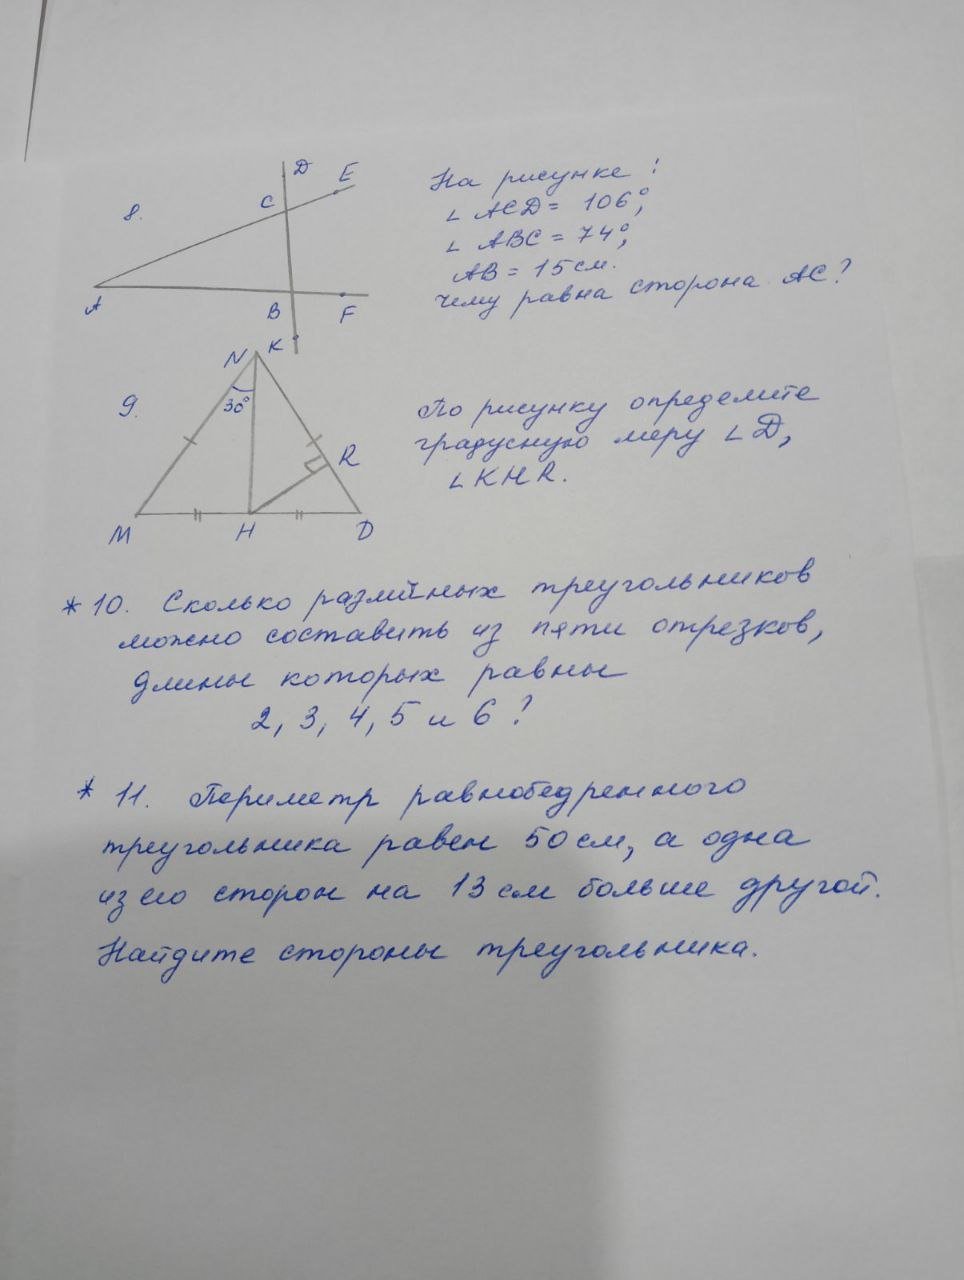 8.
D
E
C
A
B
F
K
На рисунке:
∠ ACD = 106°;
∠ ABC = 74°;
AB = 15 см.
Чему равна сторона AC?
9.
N
30°
R
M
H
D
По рисунку определите
градусную меру ∠D,
∠KHR.
* 10. Сколько различных треугольников
можно составить из пяти отрезков,
длины которых равны
2, 3, 4, 5 и 6?
* 11. Периметр равнобедренного
треугольника равен 50 см, а одна
из его сторон на 13 см больше другой.
Найдите стороны треугольника.